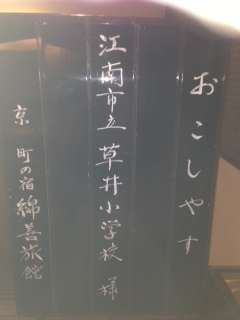 おこしやす
江南市立草井小学校 様
京 町の宿 綿善旅館